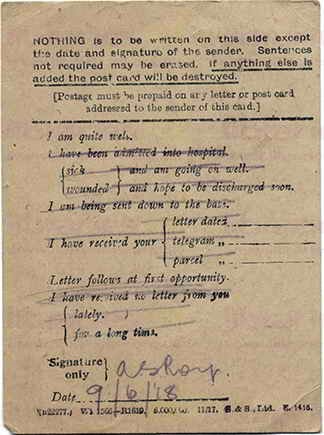 NOTHING is to be written on this side except
the date and signature of the sender. Sentences
not required may be erased. If anything else is
added the post card will be destroyed.
[Postage must be prepaid on any letter or post card
addressed to the sender of this card.]
I am quite well.
I have been admitted into hospital.
{sick } and am going on well.
{wounded } and hope to be discharged soon.
I am being sent down to the base.
{letter dated
I have received your {telegram „
{parcel „
Letter follows at first opportunity.
I have received no letter from you
{lately.
{for a long time.
Signature
only }
Date 9/6/18
11/17. E. 1415.